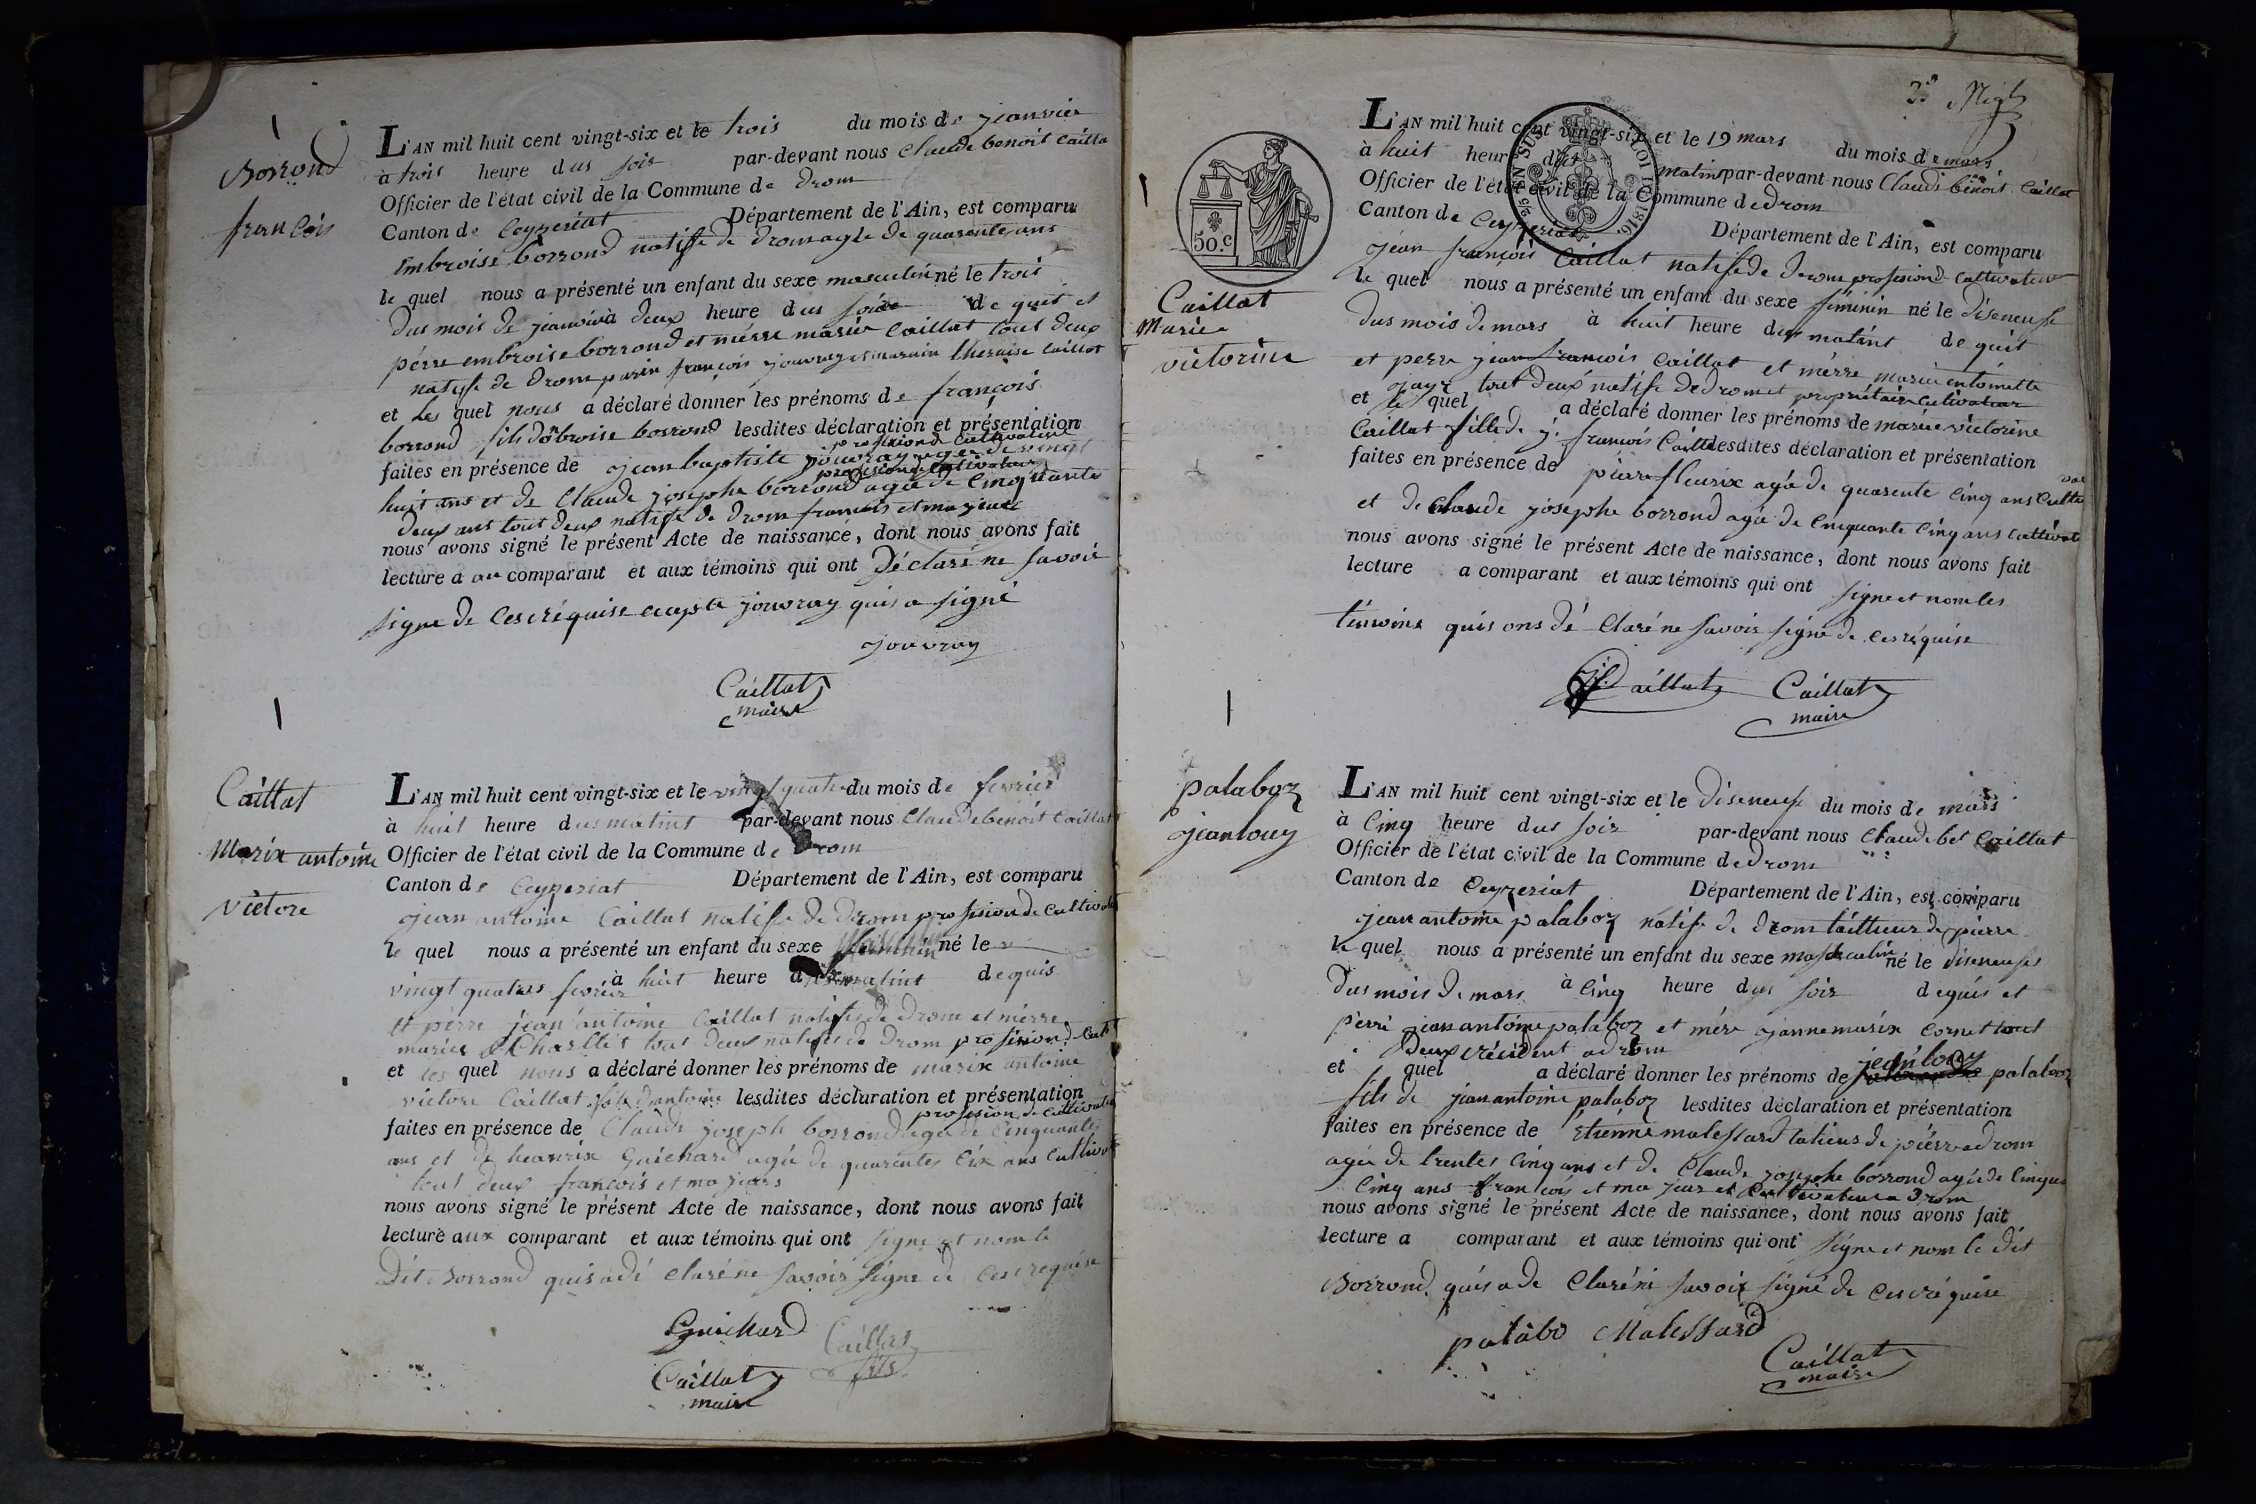 1
Borrond
françois
L'AN mil huit cent vingt-six et le trois du mois de jeanvier
à trois heure dus soir par-devant nous Claude benoit Caillat
Officier de l'état civil de la Commune de drom
Canton de Ceyzeriat Département de l'Ain, est comparu
Embroise borrond natiffe de drom agée de quarente ans
le quel nous a présenté un enfant du sexe masculin né le trois
dus mois de jeanvier à deux heure dus soir de quit et
pérre embroise borrond et mérre mariée Caillat tout deux
natife de drom parin françois jouvray et maraine Caillat
et les quel nous a déclaré donner les prénoms de françois
borrond fils d'enbroise borrond lesdites déclaration et présentation
profesiond Cultivateur
faites en présence de jean baptiste jouvray agée de vingt
profesiond Cultivateur
huit ans et de Claude josephe borrond agée de Cinquante
deux ans tout deux natife de drom francois et majeurs
nous avons signé le présent Acte de naissance, dont nous avons fait
lecture a au comparant et aux témoins qui ont déclaré ne savoir
signe de Ces réquise jouvray quis a signé
jouvray
Caillat
maire
1
Caillat
Marix antoine
victore
L'AN mil huit cent vingt-six et le vingt quatre du mois de fevrier
à huit heure dus matint par-devant nous Claude benoit Caillat
Officier de l'état civil de la Commune de drom
Canton de Ceyzeriat Département de l'Ain, est comparu
jean antoine Caillat natiffe de drom profision de Cultivat
le quel nous a présenté un enfant du sexe né le
vingt quatres fevrier à huit heure dus matint de quis
et pérre jean antoine Caillat natife de drom et mérre
mariée Charllis tout deux natife de drom profision d Cult
et les quel nous a déclaré donner les prénoms de marix antoine
victore Caillat antoine lesdites déclaration et présentation
profesion de Cultivateur
faites en présence de Claude joseph borrond agée de Cinquantes
ans et de heanrix Guichard agée de quarentes Cix ans Cultivat
tout deux francois et majeurs
nous avons signé le présent Acte de naissance, dont nous avons fait
lecture aux comparant et aux témoins qui ont signe et nom le
Dit Borrond quis a dé Claré ne savoir signe de Ces requise
Guichard
Caillat
fils
Caillat
maire
50.C
EN SUS
LOI DE 1816
1
Caillat
Marie
victorine
L'AN mil huit cent vingt-six et le 19 mars du mois de mars
à huit heure dus matins par-devant nous Claude benoit Caillat
Officier de l'état civil de la Commune de drom
Canton de Ceyzeriat Département de l'Ain, est comparu
jean françois Caillat natife de drom profesiond Cultivateur
le quel nous a présenté un enfant du sexe féminin né le diseneufe
dus mois de mars à huit heure dus matint de quit
et perre jean francois Caillat et mérre mariée entoinette
tout deux natife de drom et propriétaire Cultivateur
et le quel a déclaré donner les prénoms de mariée victorine
Caillat fille de j. francois Caillat lesdites déclaration et présentation
faites en présence de pierre fleurix agée de quarente Cinq ans Cultiv
et de Claude josephe borrond agée de Cinquante Cinq ans Cultivat
nous avons signé le présent Acte de naissance, dont nous avons fait
lecture a comparant et aux témoins qui ont signe et nom les
témoins quis ons dé Claré ne savoir signe de Ces réquise
Caillat Caillat
maire
1
palaboz
jean louy
L'AN mil huit cent vingt-six et le diseneufe du mois de mars
à Cinq heure dus soir par-devant nous Claude bet Caillat
Officier de l'état civil de la Commune de drom
Canton de Ceyzeriat Département de l'Ain, est comparu
jean antoine palaboz natife de drom tailleur de pierre
le quel nous a présenté un enfant du sexe masculin né le diseneufes
dus mois de mars à Cinq heure dus soir de quis et
pérre jean antoine palaboz et mére jannemarix Cornet tout
deux résident a drom
et quel a déclaré donner les prénoms de jean louy palaboz
fils de jean antoine palaboz lesdites déclaration et présentation
faites en présence de Étienne malessard talieur de piérre a drom
agée de trentes Cinq ans et de Claude josephe borrond agée de Cinqua
Cinq ans francois et ma jeur et Cultivateur a drom
nous avons signé le présent Acte de naissance, dont nous avons fait
lecture a comparant et aux témoins qui ont signe et nom le dit
Borrond quis a dé Claré ne savoir signé de Ces réquise
palabo Malessard
Caillat
maire